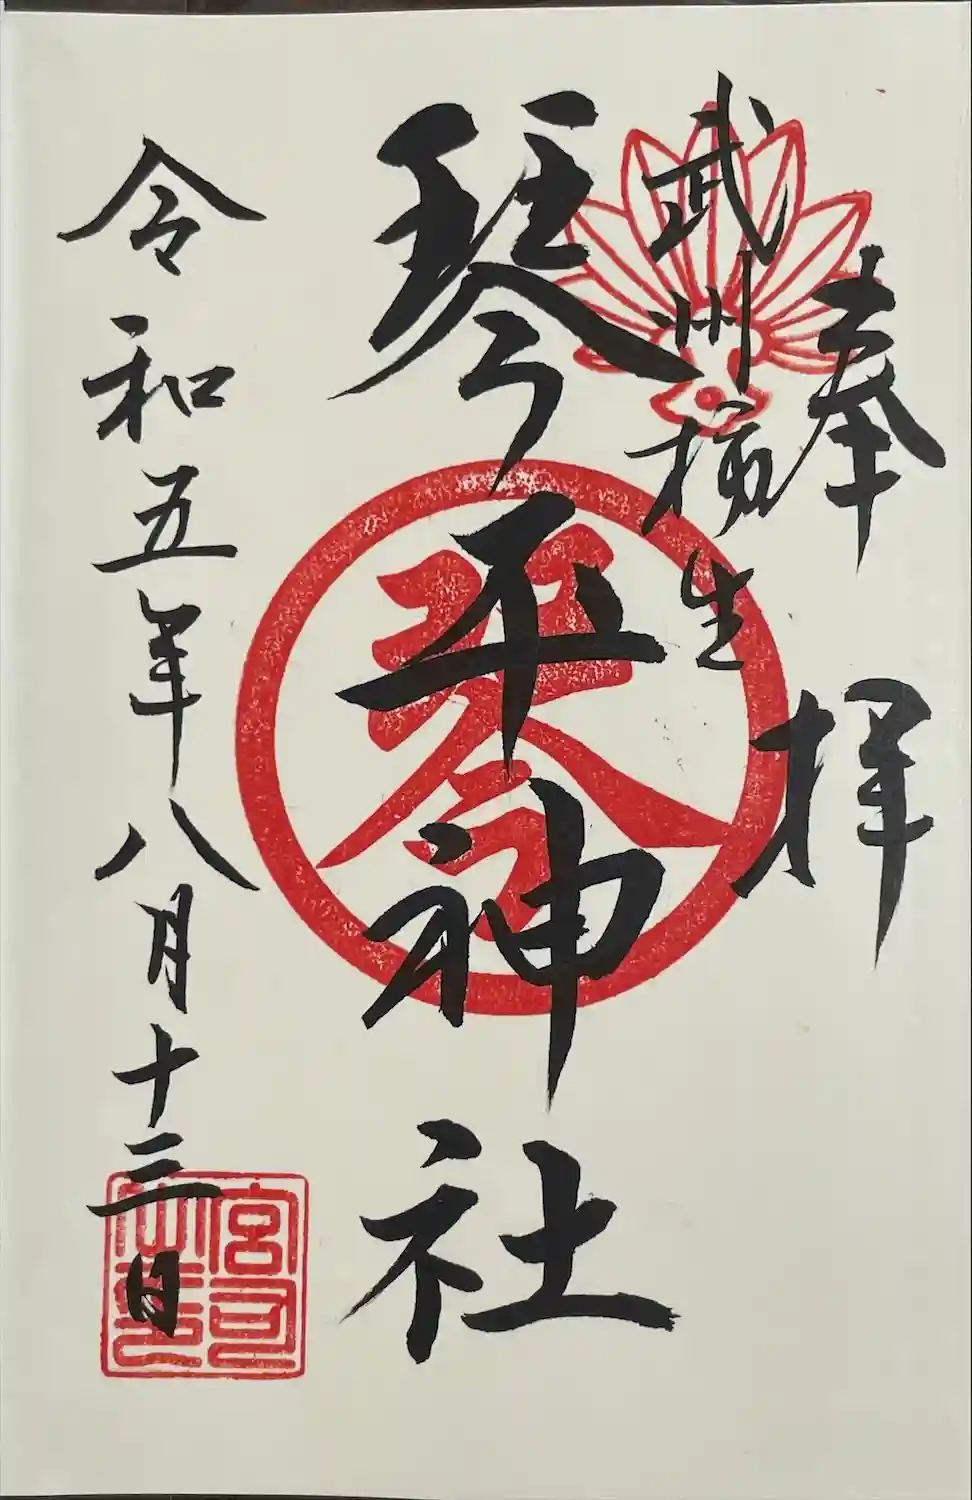 奉拝
武州柿生
琴平神社
琴
令和五年八月十三日
宮司之印